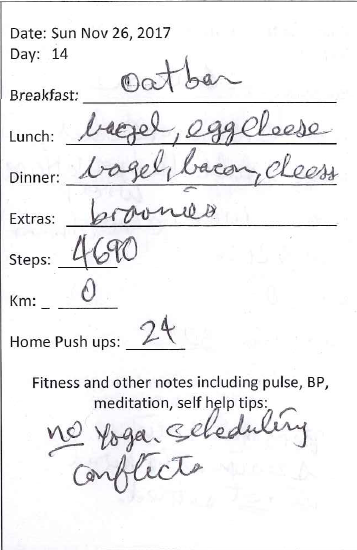 Date: Sun Nov 26, 2017
Day: 14
Breakfast: oat bar
Lunch: bagel, egg cheese
Dinner: bagel, bacon, cheese
Extras: brownies
Steps: 4690
Km: _ 0
Home Push ups: 24
Fitness and other notes including pulse, BP,
meditation, self help tips:
no yoga. scheduling
conflicts